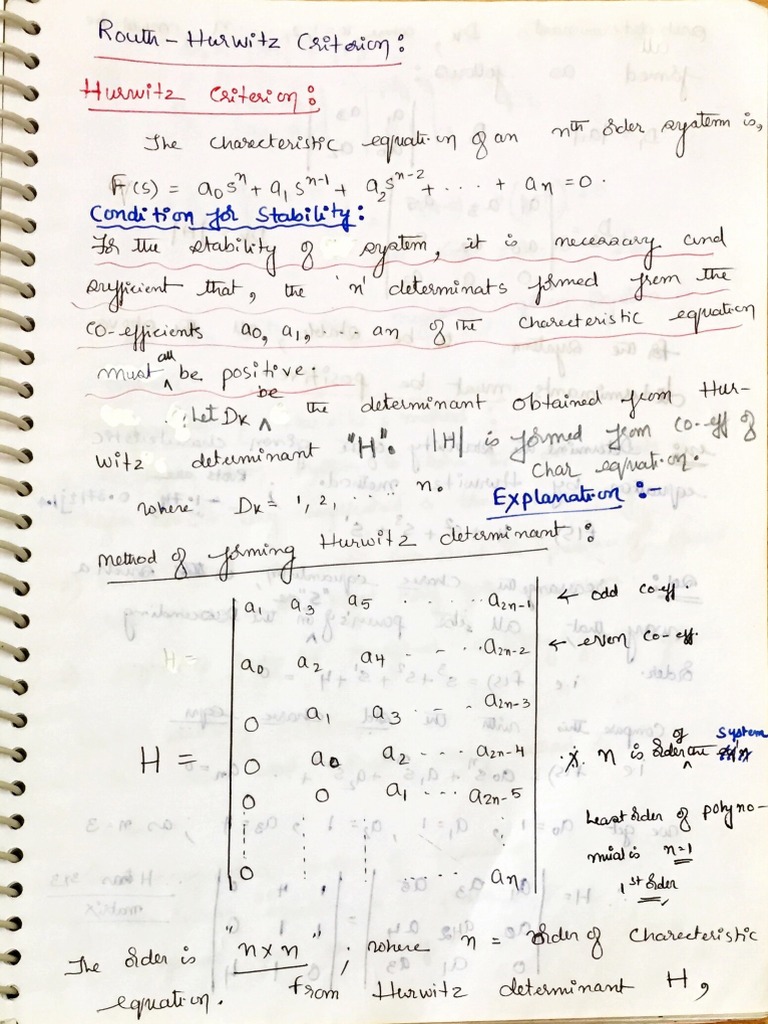 Routh-Hurwitz Criterion:
Hurwitz Criterion:
The characteristic equation of an nth order system is,
F(s) = a₀sⁿ + a₁sⁿ⁻¹ + a₂sⁿ⁻² + ... + an = 0.
Condition for Stability:
For the stability of system, it is necessary and
sufficient that, the 'n' determinats formed from the
co-efficients a₀, a₁, ... an of the charecteristic equation
must all be positive.
Let DK be the determinant obtained from Hur-
witz determinant "H". |H| is formed from co-eff of
char equation.
where DK = 1, 2, ..... n.
Explanation :-
Method of forming Hurwitz determinant:
a₁ a₃ a₅ ..... a2n-1 ← odd co-eff
a₀ a₂ a₄ - - - a2n-2 ← even co-eff.
0 a₁ a₃ - - - a2n-3
H = 0 a₀ a₂ ... a2n-4 n is order of the system
0 0 a₁ ... a2n-5
Least order of polyno-
mial is n=1
1st order
0 ..... an
The order is "n×n" ; where n = order of characteristic
equation. from Hurwitz determinant H,